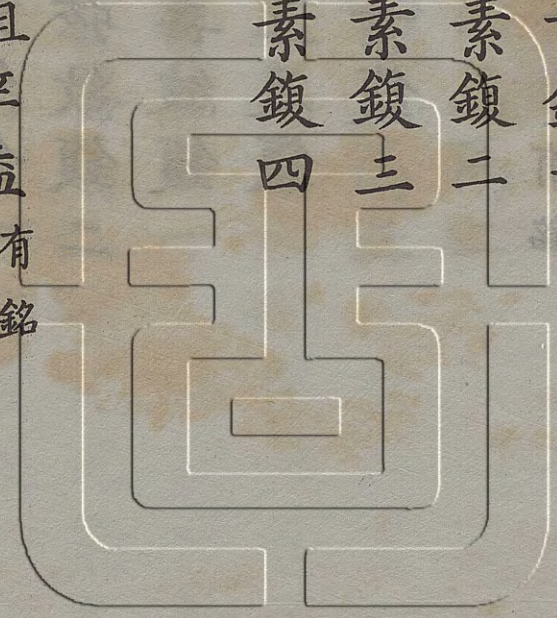 素鍑二
素鍑三
素鍑四
有銘